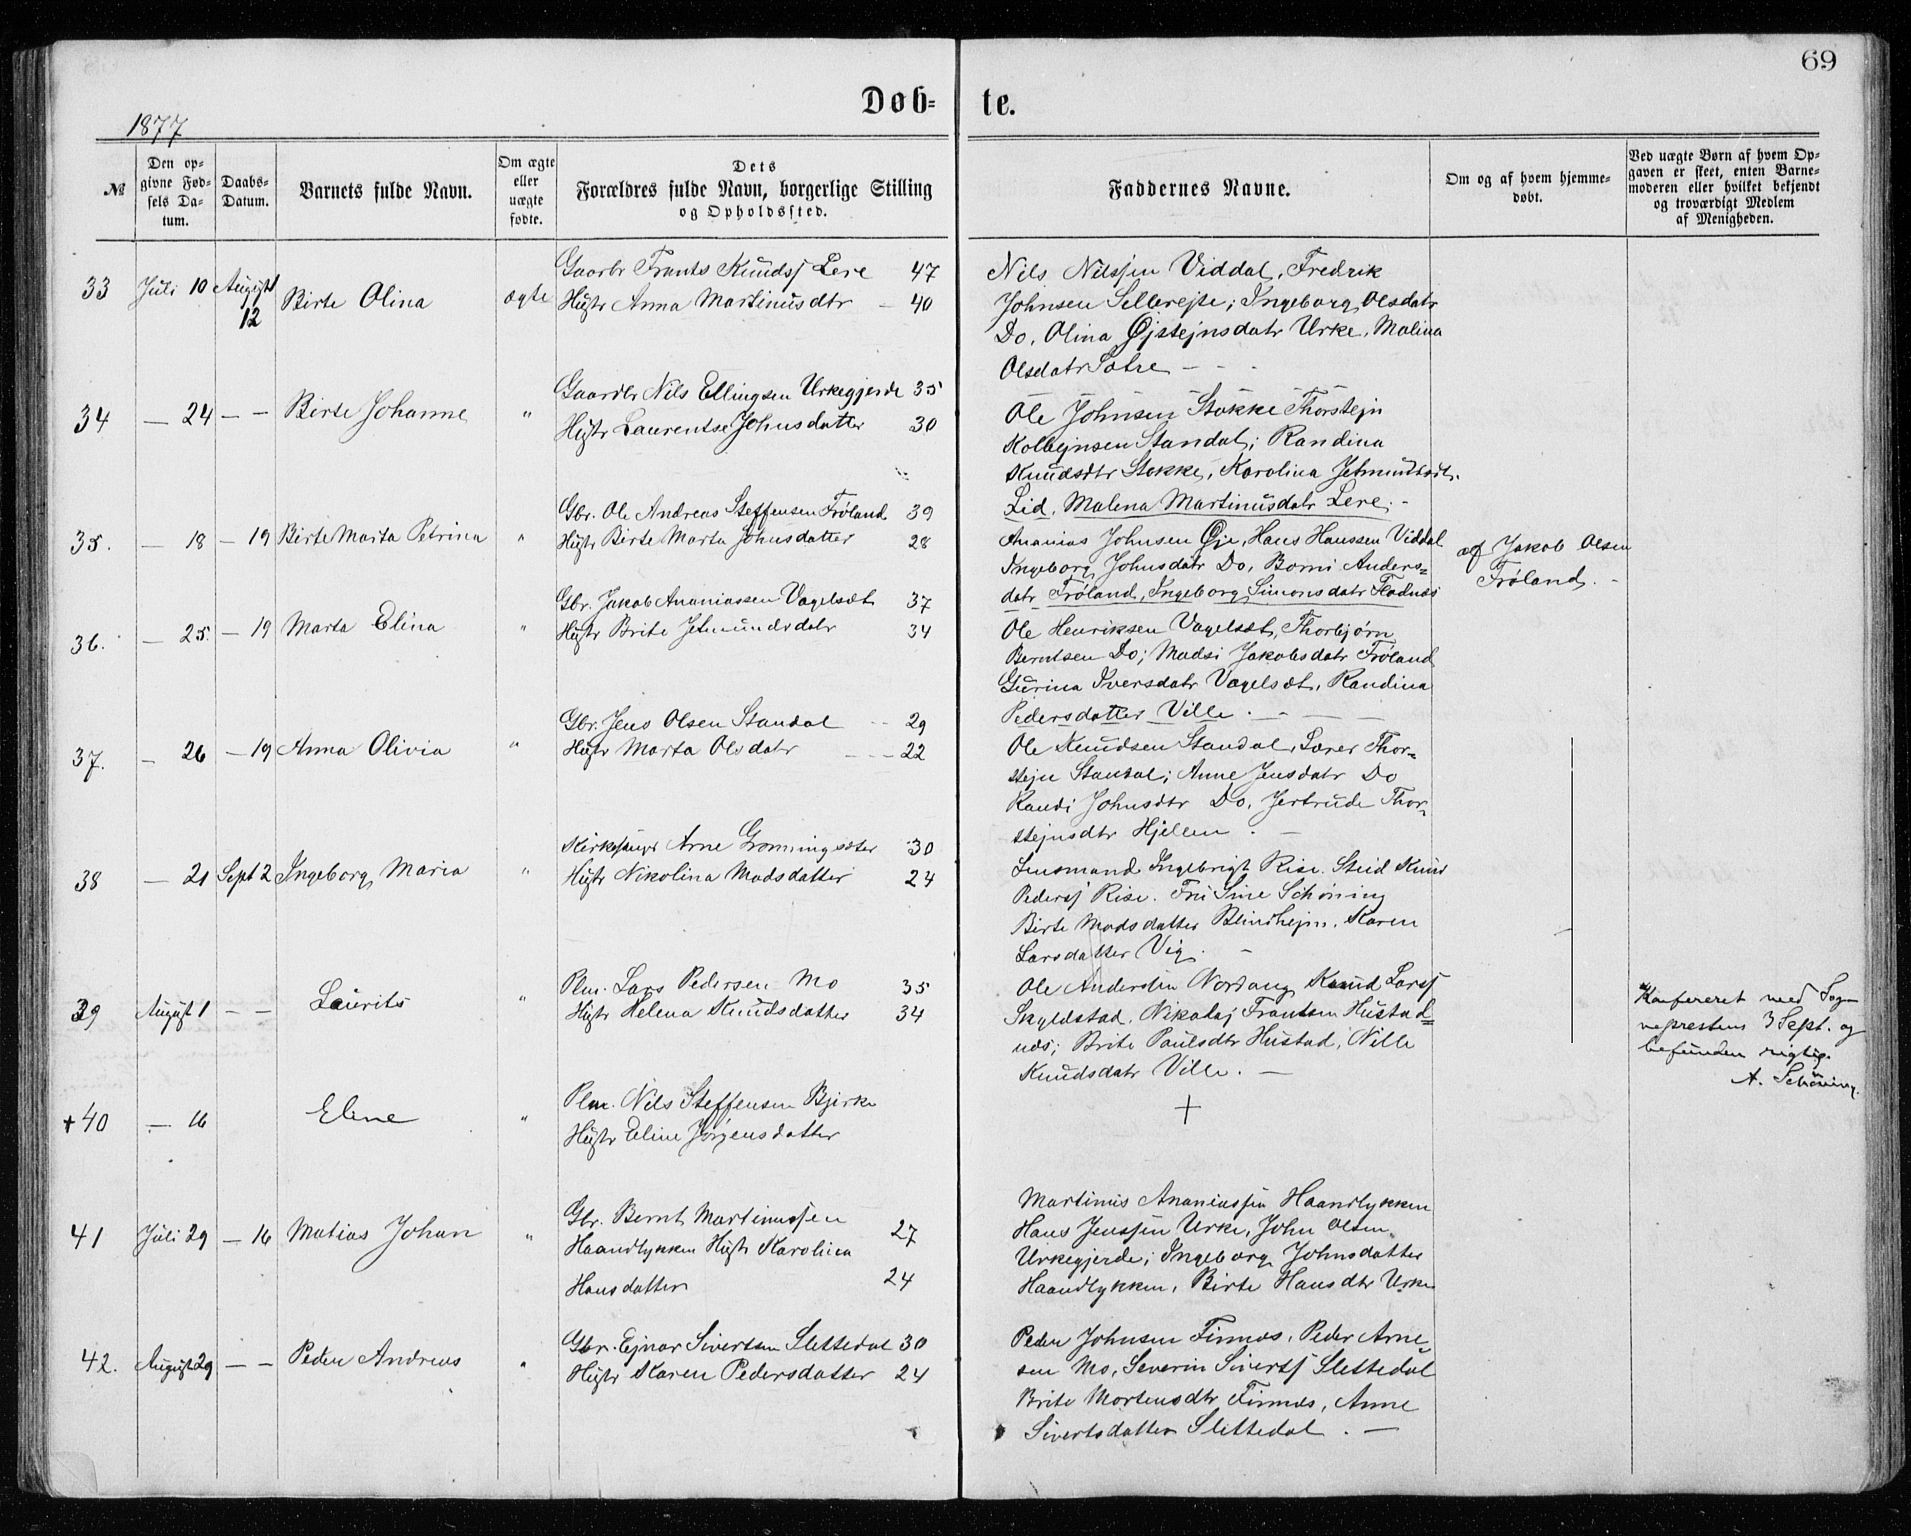 69
Døb-
te.
1877
№
Den op-
givne Fød-
sels Da-
tum.
Daabs-
Datum.
Barnets fulde Navn.
Om ægte
eller
uægte
fødte.
Dets
Forældres fulde Navn, borgerlige Stilling
og Opholdssted.
Faddernes Navne.
Om og af hvem hjemme-
døbt.
Ved uægte Børn af hvem Op-
gaven er skeet, enten Barne-
moderen eller hvilket bekjendt
og troværdigt Medlem
af Menigheden.
33 Juli 10 August 12 Birte Olina ægte
Gaarbr Frants Knudsf Lere 47
Hustr Anna Martinusdtr - 40
Nils Nilssen Viddal, Fredrik
Johnsen Sellerejte; Ingeborg Olsdatr
Do, Olina Øjstejnsdatr Urke, Malina
Olsdatr Sætre - - -
34 - 24 - - Birte Johanne "
Gaardbr Nils Ellingsen Urkegjerde 35
Hustr Laurentse Johnsdatter 30
Ole Johnsen Stokke Thorstejn
Kolbejnsen Standal; Randina
Knudsdtr Stokke, Karolina Jetmundsdt.
Lid, Malena Martinusdatr Lere. -
35. - 18 - 19 Birte Marta Petrina "
Gbr. Ole Andreas Steffensen Frøland 39
Hustr Birte Marta Johnsdatter 28
Ananias Johnsen Øje, Hans Hanssen Viddal
Ingeborg Johnsdatr Do, Borni Anders-
datr Frøland, Ingeborg Simonsdatr Fladnæs
af Jakob Olsen
Frøland. -
36. - 25. - 19 Marta Elina "
Gbr. Jakob Ananiassen Vagelsæt 37
Hustr Brite Jetmundsdatr 34
Ole Henriksen Vagelsæt, Thorbjørn
Berntsen Do; Madsi Jakobsdatr Frøland
Gurina Iversdatr Vagelsæt, Randina
Pedersdatter Ville. - - -
37. - 26 - 19 Anna Olivia "
Gbr. Jens Olsen Standal - - 29
Hustr Marta Olsdatr - - - 22
Ole Knudsen Standal, Lærer Thor-
stejn Standal; Anne Jensdatr Do
Randi Johnsdtr Do, Jertrude Thor-
stejnsdtr Hjellen. -
38 - 21 Sept 2 Ingeborg Maria "
Kirkesanger Arne Grønningsæter 30
Hustr Nikolina Madsdatter 24
Lensmand Ingebrigt Rise. Stud Knud
Pedersf Rise. Fru Sine Schøning
Birte Madsdatter Blindhejm, Karen
Larsdatter Vig. -
39 August 1 - - Laurits "
Plm. Lars Pedersen Mo 35
Hustr Helena Knudsdatter 34
Ole Andersen Nordang Knud Larsf
Skyldstad, Nikolaj Frantsen Hustad-
næs; Brite Paulsdtr Hustad, Nille
Knudsdatr Ville. -
Konfereret med Sog-
neprestens 3 Sept. og
befunden rigtig.
A. Schöning
+ 40 - 16 Eline "
Plm. Nils Steffensen Bjerke
Hustr Eline Jørgensdatter
+
41 Juli 29 - 16 Matias Johan "
Gbr. Bernt Martinussen
Haandlykken Hustr Karolina 27
Hansdatter 24
Martinus Ananiassen Haandlykken
Hans Jenssen Urke, John Olsen
Urkegjerde; Ingeborg Johnsdatter
Haandlykken, Birte Hansdtr Urke
42. August 29 - - Peder Andreas "
Gbr. Ejnar Sivertsen Slettedal 30
Hustr Karen Pedersdatter 24
Peder Johnsen Finnæs, Peder Arne-
sen Mo, Severin Sivertsf Slettedal
Brite Mortensdtr Finnæs, Anne
Sivertsdatter Slettedal. -